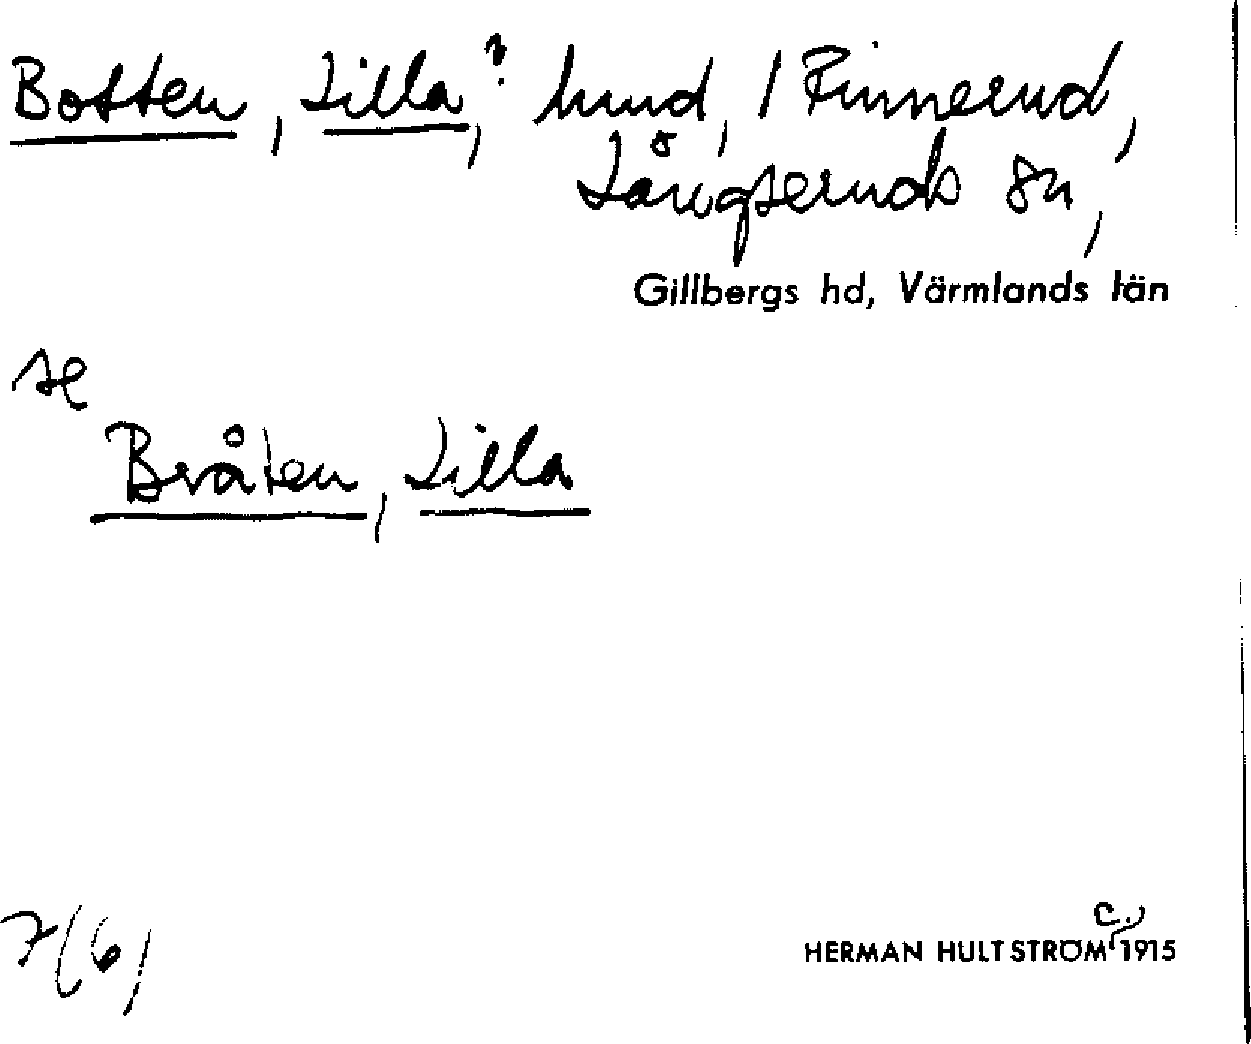 Botten, Lilla,? hund, / Finnerud,
Långseruds sn,
Gillbergs hd, Värmlands län
se
Bråten, Lilla
7(6)
HERMAN HULTSTRÖM c. 1915